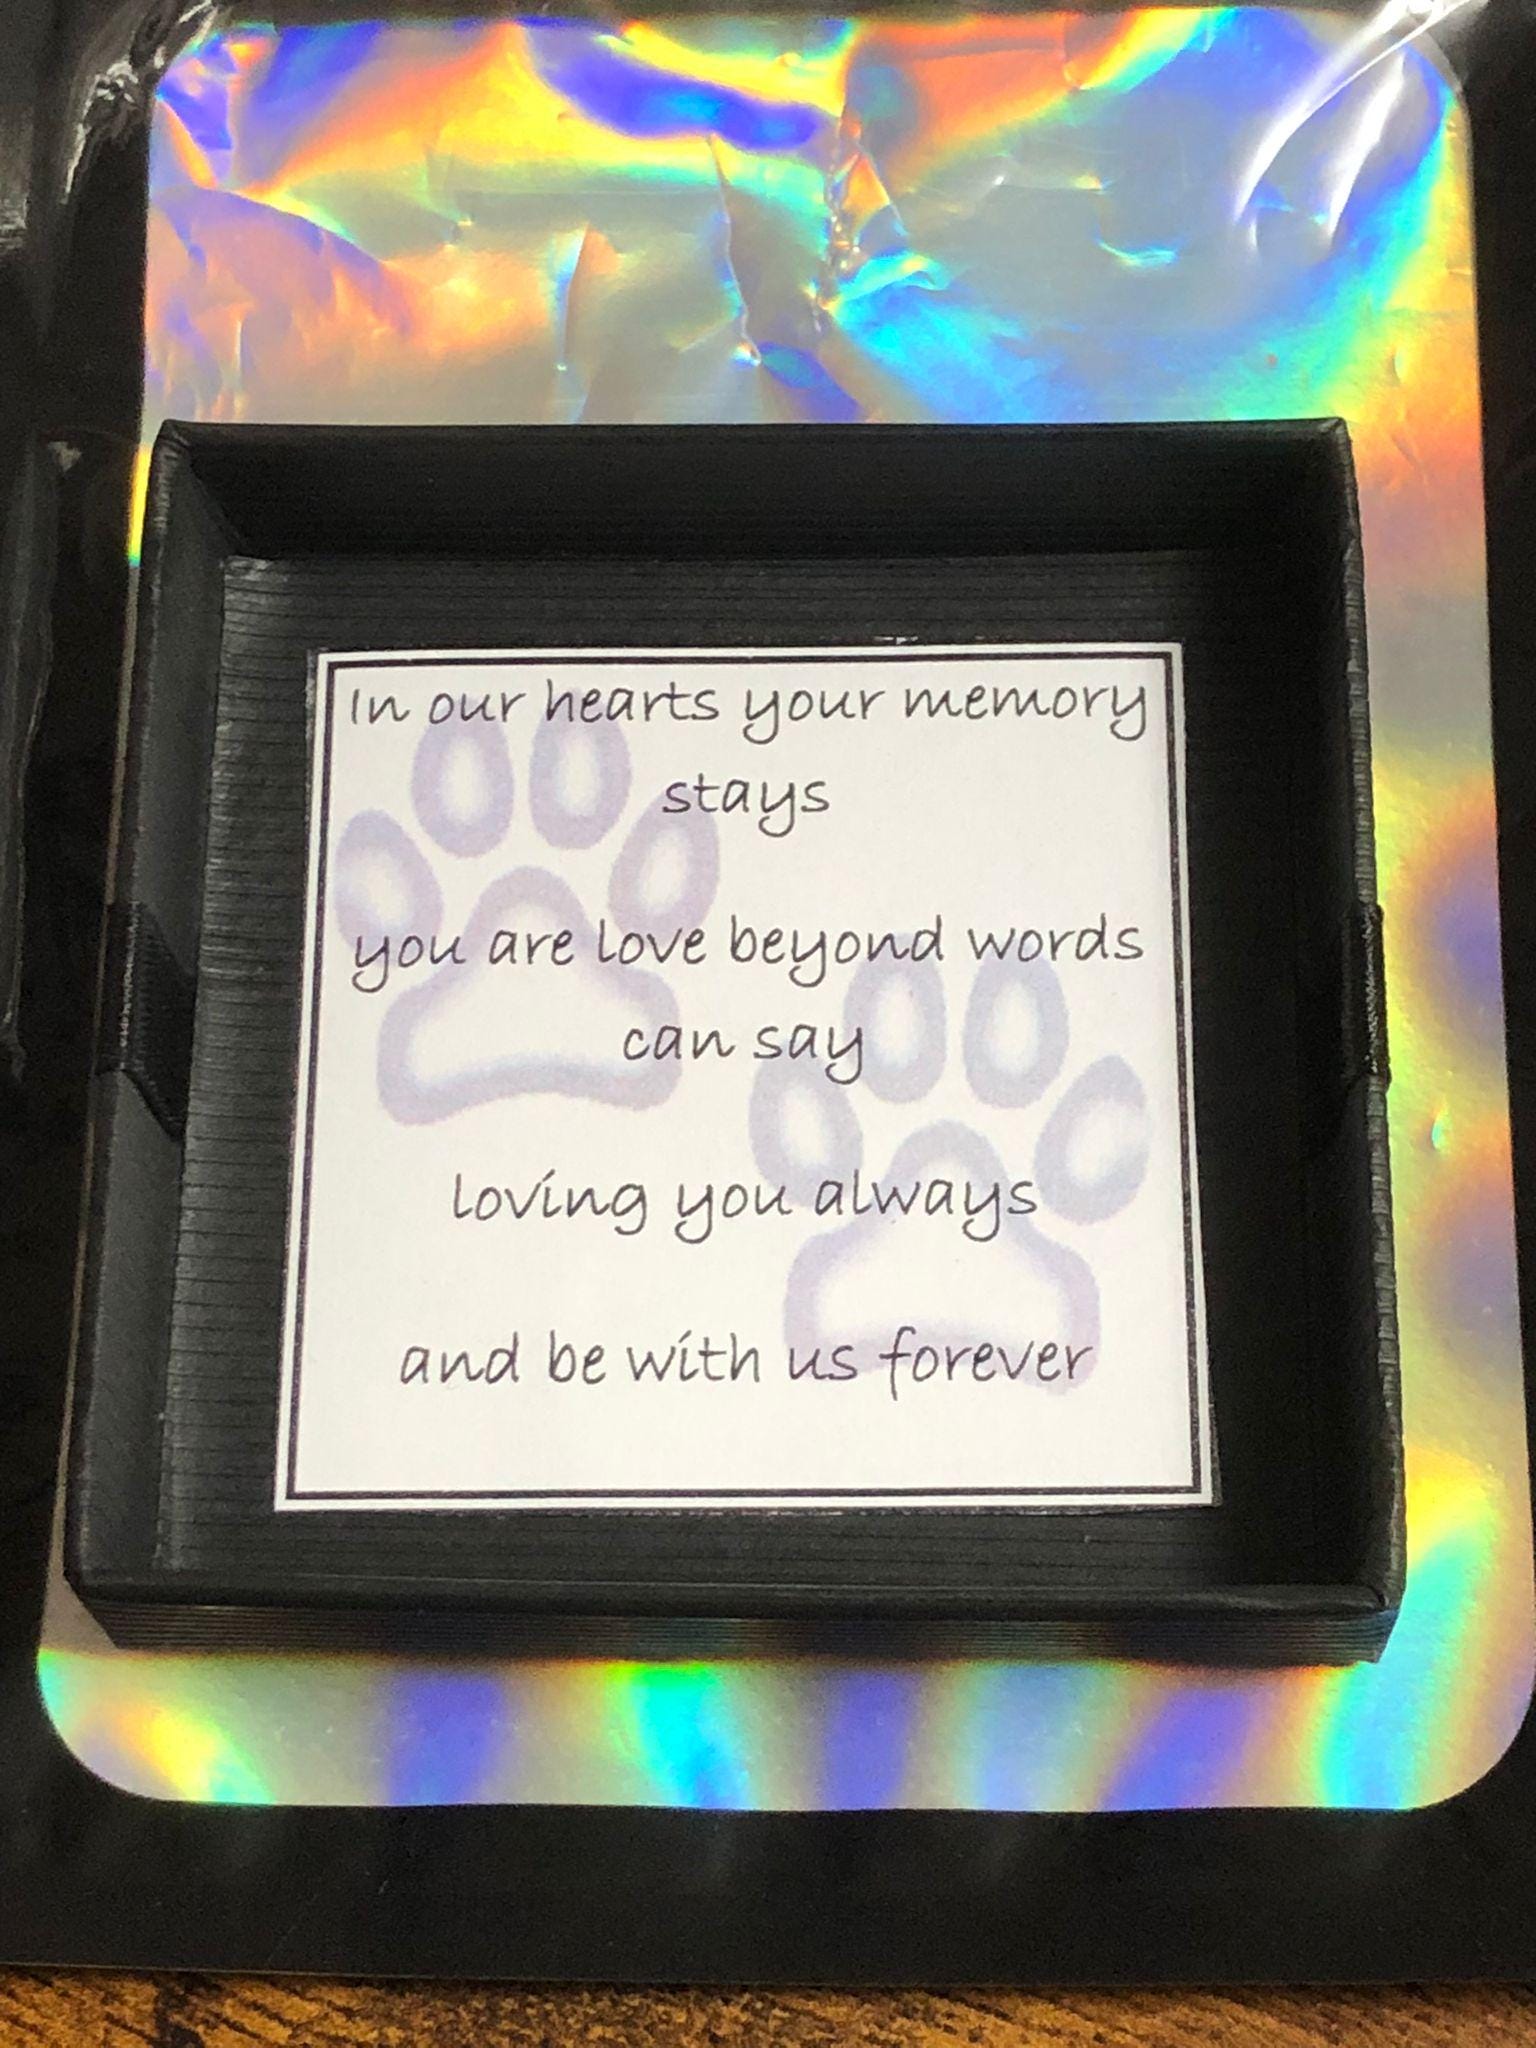 In our hearts your memory
stays
you are love beyond words
can say
loving you always
and be with us forever